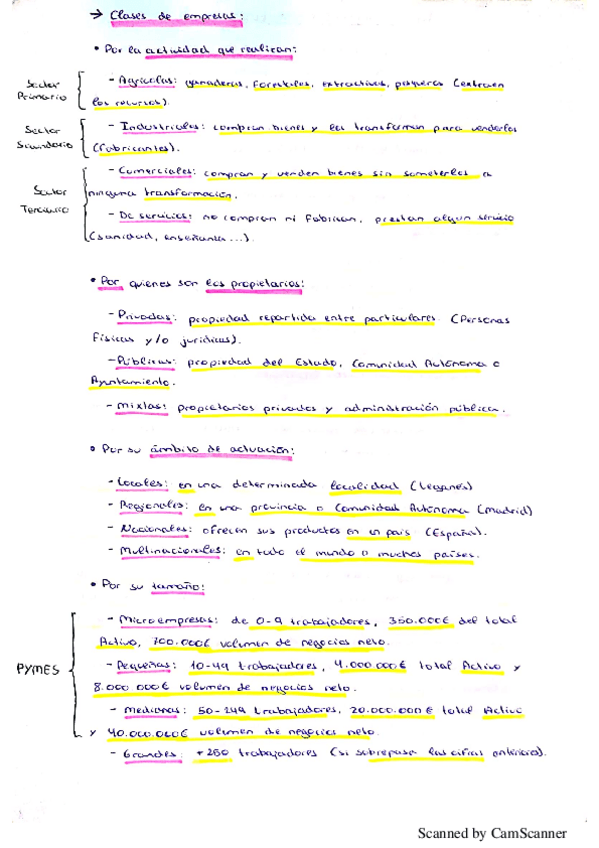 → Clases de empresas:
• Por la actividad que realizan:
Sector Primario
- Agrícolas: ganaderas, forestales, extractivas, pesqueras (extraen
los recursos).
Sector Secundario
- Industriales: compran bienes y los transforman para venderlos
(fabricantes).
Sector Terciario
- Comerciales: compran y venden bienes sin someterlos a
ninguna transformación.
- De servicios: no compran ni fabrican, prestan algun servicio
(sanidad, enseñanza...).
• Por quienes son los propietarios:
- Privadas: propiedad repartida entre particulares. (Personas
Físicas y/o jurídicas).
- Públicas: propiedad del Estado, Comunidad Autónoma o
Ayuntamiento.
- Mixtas: propietarios privados y administración pública.
• Por su ámbito de actuación:
- Locales: en una determinada localidad (Leganés)
- Regionales: en una provincia o Comunidad Autónoma (Madrid)
- Nacionales: ofrecen sus productos en un país (España).
- Multinacionales: en todo el mundo o muchos países.
• Por su tamaño:
PYMES
- Microempresas: de 0-9 trabajadores, 350.000€ del total
Activo, 700.000€ volumen de negocios neto.
- Pequeñas: 10-49 trabajadores, 4.000.000€ total Activo y
8.000.000€ volumen de negocios neto.
- Medianas: 50-249 trabajadores, 20.000.000€ total Activo
y 40.000.000€ volumen de negocios neto.
- Grandes: +250 trabajadores (si sobrepasa las cifras anteriores).
Scanned by CamScanner